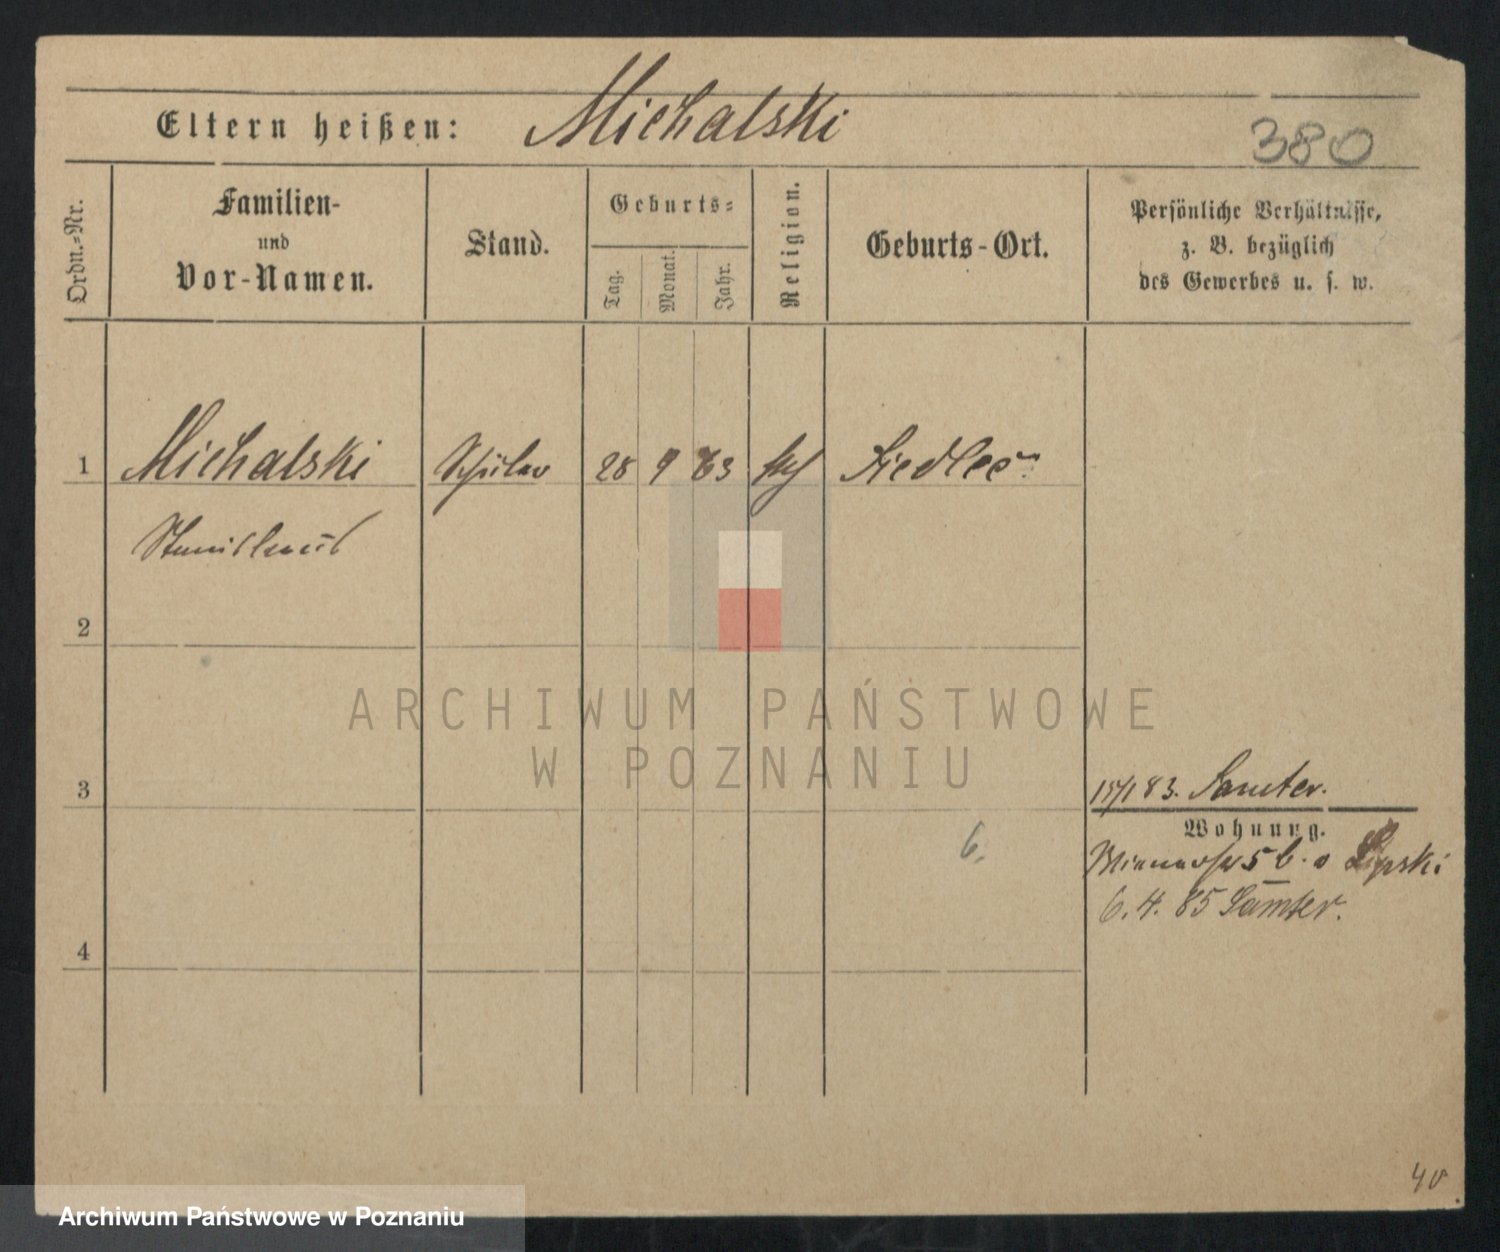 Eltern heißen: Michalski
380
Ordn.-Nr.
Familien-
und
Vor-Namen.
Stand.
Geburts-
Tag.
Monat.
Jahr.
Religion.
Geburts-Ort.
Persönliche Verhältnisse,
z. B. bezüglich
des Gewerbes u. s. w.
1 Michalski Schüler 28 9 63 kath Siedlec
Stanislaus
2
ARCHIWUM PAŃSTWOWE
W POZNANIU
3
15/1 83. Samter.
Wohnung.
5 b. Lipski
6.
6. 4. 85 Samter.
4
Archiwum Państwowe w Poznaniu